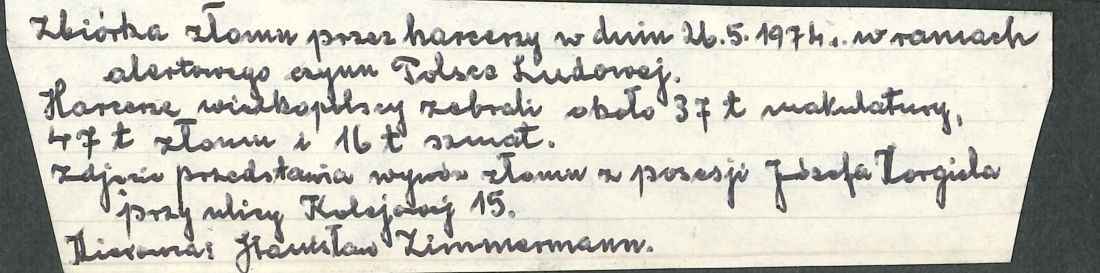 Zbiórka złomu przez harcerzy w dniu 26.5.1974r. w ramach
alertowego czynu Polsce Ludowej.
Harcerze wielkopolscy zebrali około 37 t makulatury,
47 t złomu i 16 t szmat.
Zdjęcie przedstawia wywóz złomu z posesji Józefa
przy ulicy Kolejowej 15.
Stanisław Zimmermann.